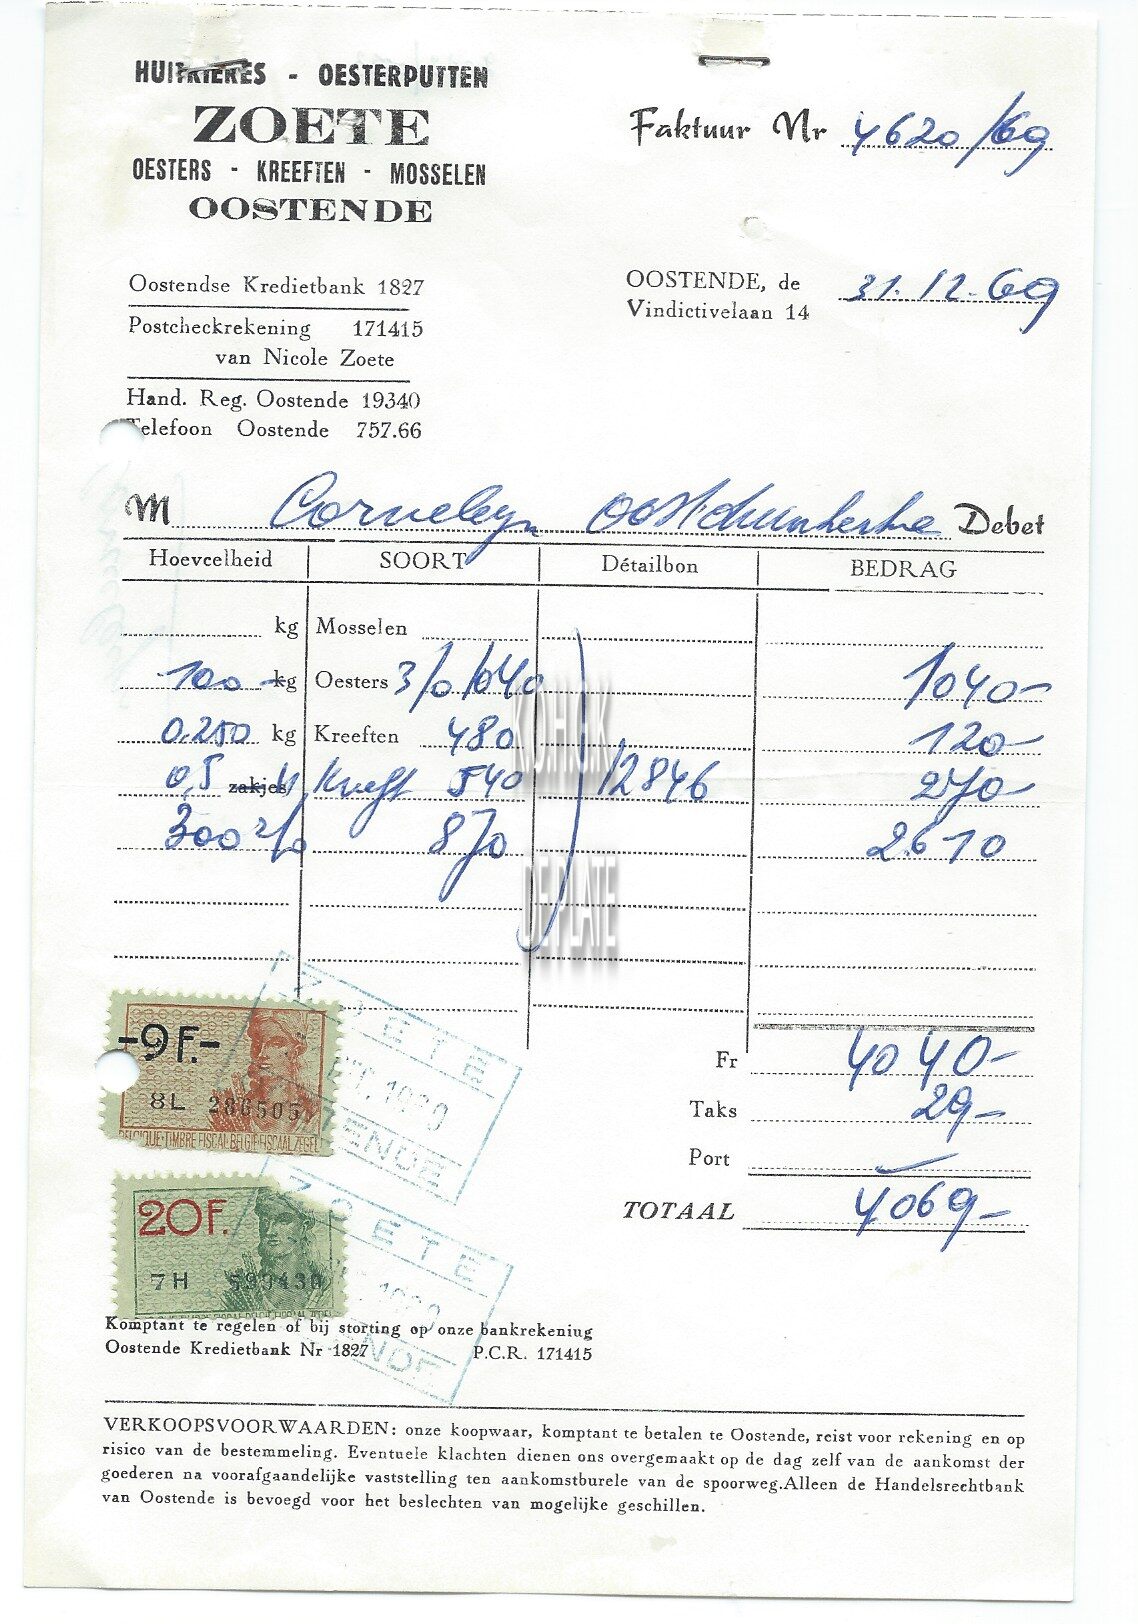 HUITRIERES - OESTERPUTTEN
ZOETE
OESTERS - KREEFTEN - MOSSELEN
OOSTENDE
Faktuur Nr 4620/69
Oostendse Kredietbank 1827
Postcheckrekening 171415
van Nicole Zoete
Hand. Reg. Oostende 19340
Telefoon Oostende 757.66
OOSTENDE, de 31.12.69
Vindictivelaan 14
M Corneleyn Debet
Hoeveelheid SOORT Détailbon BEDRAG
kg Mosselen
100 kg Oesters 3/0 1040 1040-
0,250 kg Kreeften 480 120-
0,5 zakjes Kreeft 540 12846 270-
300 2/0 870 2.610
KUHOK
DE PLATE
Fr 4040-
Taks 29-
Port
TOTAAL 4069-
-9F.-
8L 286505
BELGIQUE-TIMBRE FISCAL-BELGIE-FISCAAL ZEGEL
20F.
7H 590430
ZOETE
ZOETE
Komptant te regelen of bij storting op onze bankrekening
Oostende Kredietbank Nr 1827 P.C.R. 171415
VERKOOPSVOORWAARDEN: onze koopwaar, komptant te betalen te Oostende, reist voor rekening en op
risico van de bestemmeling. Eventuele klachten dienen ons overgemaakt op de dag zelf van de aankomst der
goederen na voorafgaandelijke vaststelling ten aankomstburele van de spoorweg.Alleen de Handelsrechtbank
van Oostende is bevoegd voor het beslechten van mogelijke geschillen.